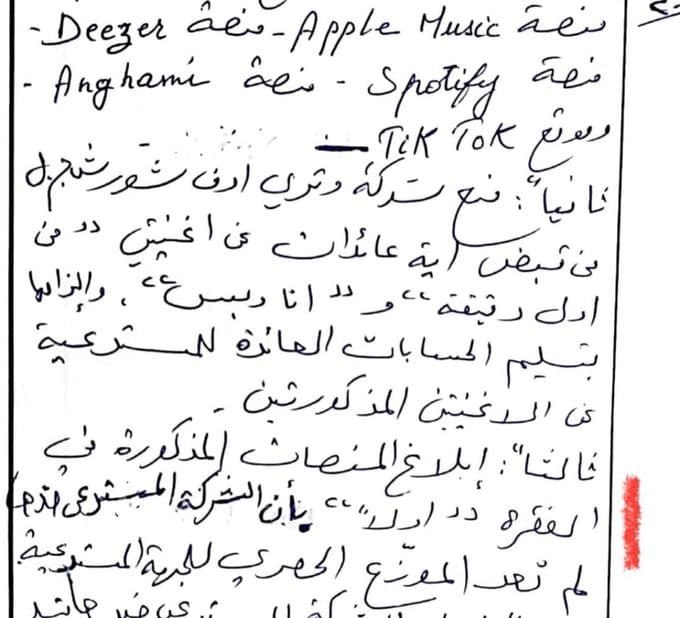 منصة Apple Music - منصة Deezer -
منصة Spotify - منصة Anghami -
وموقع TiK ToK
ثانياً: منع شركة وتري اوف شور ش.م.ل
من قبض اية عائدات عن اغنيتي "من
اول دقيقة" و "انا وبس"، وإلزامها
بتسليم الحسابات العائدة للمستدعية
عن الاغنيتين المذكورتين -
ثالثاً: إبلاغ المنصات المذكورة في
الفقرة "اولاً" بأن الشركة المستدعى ضدها
لم تعد الموزّع الحصري للجهة المستدعية